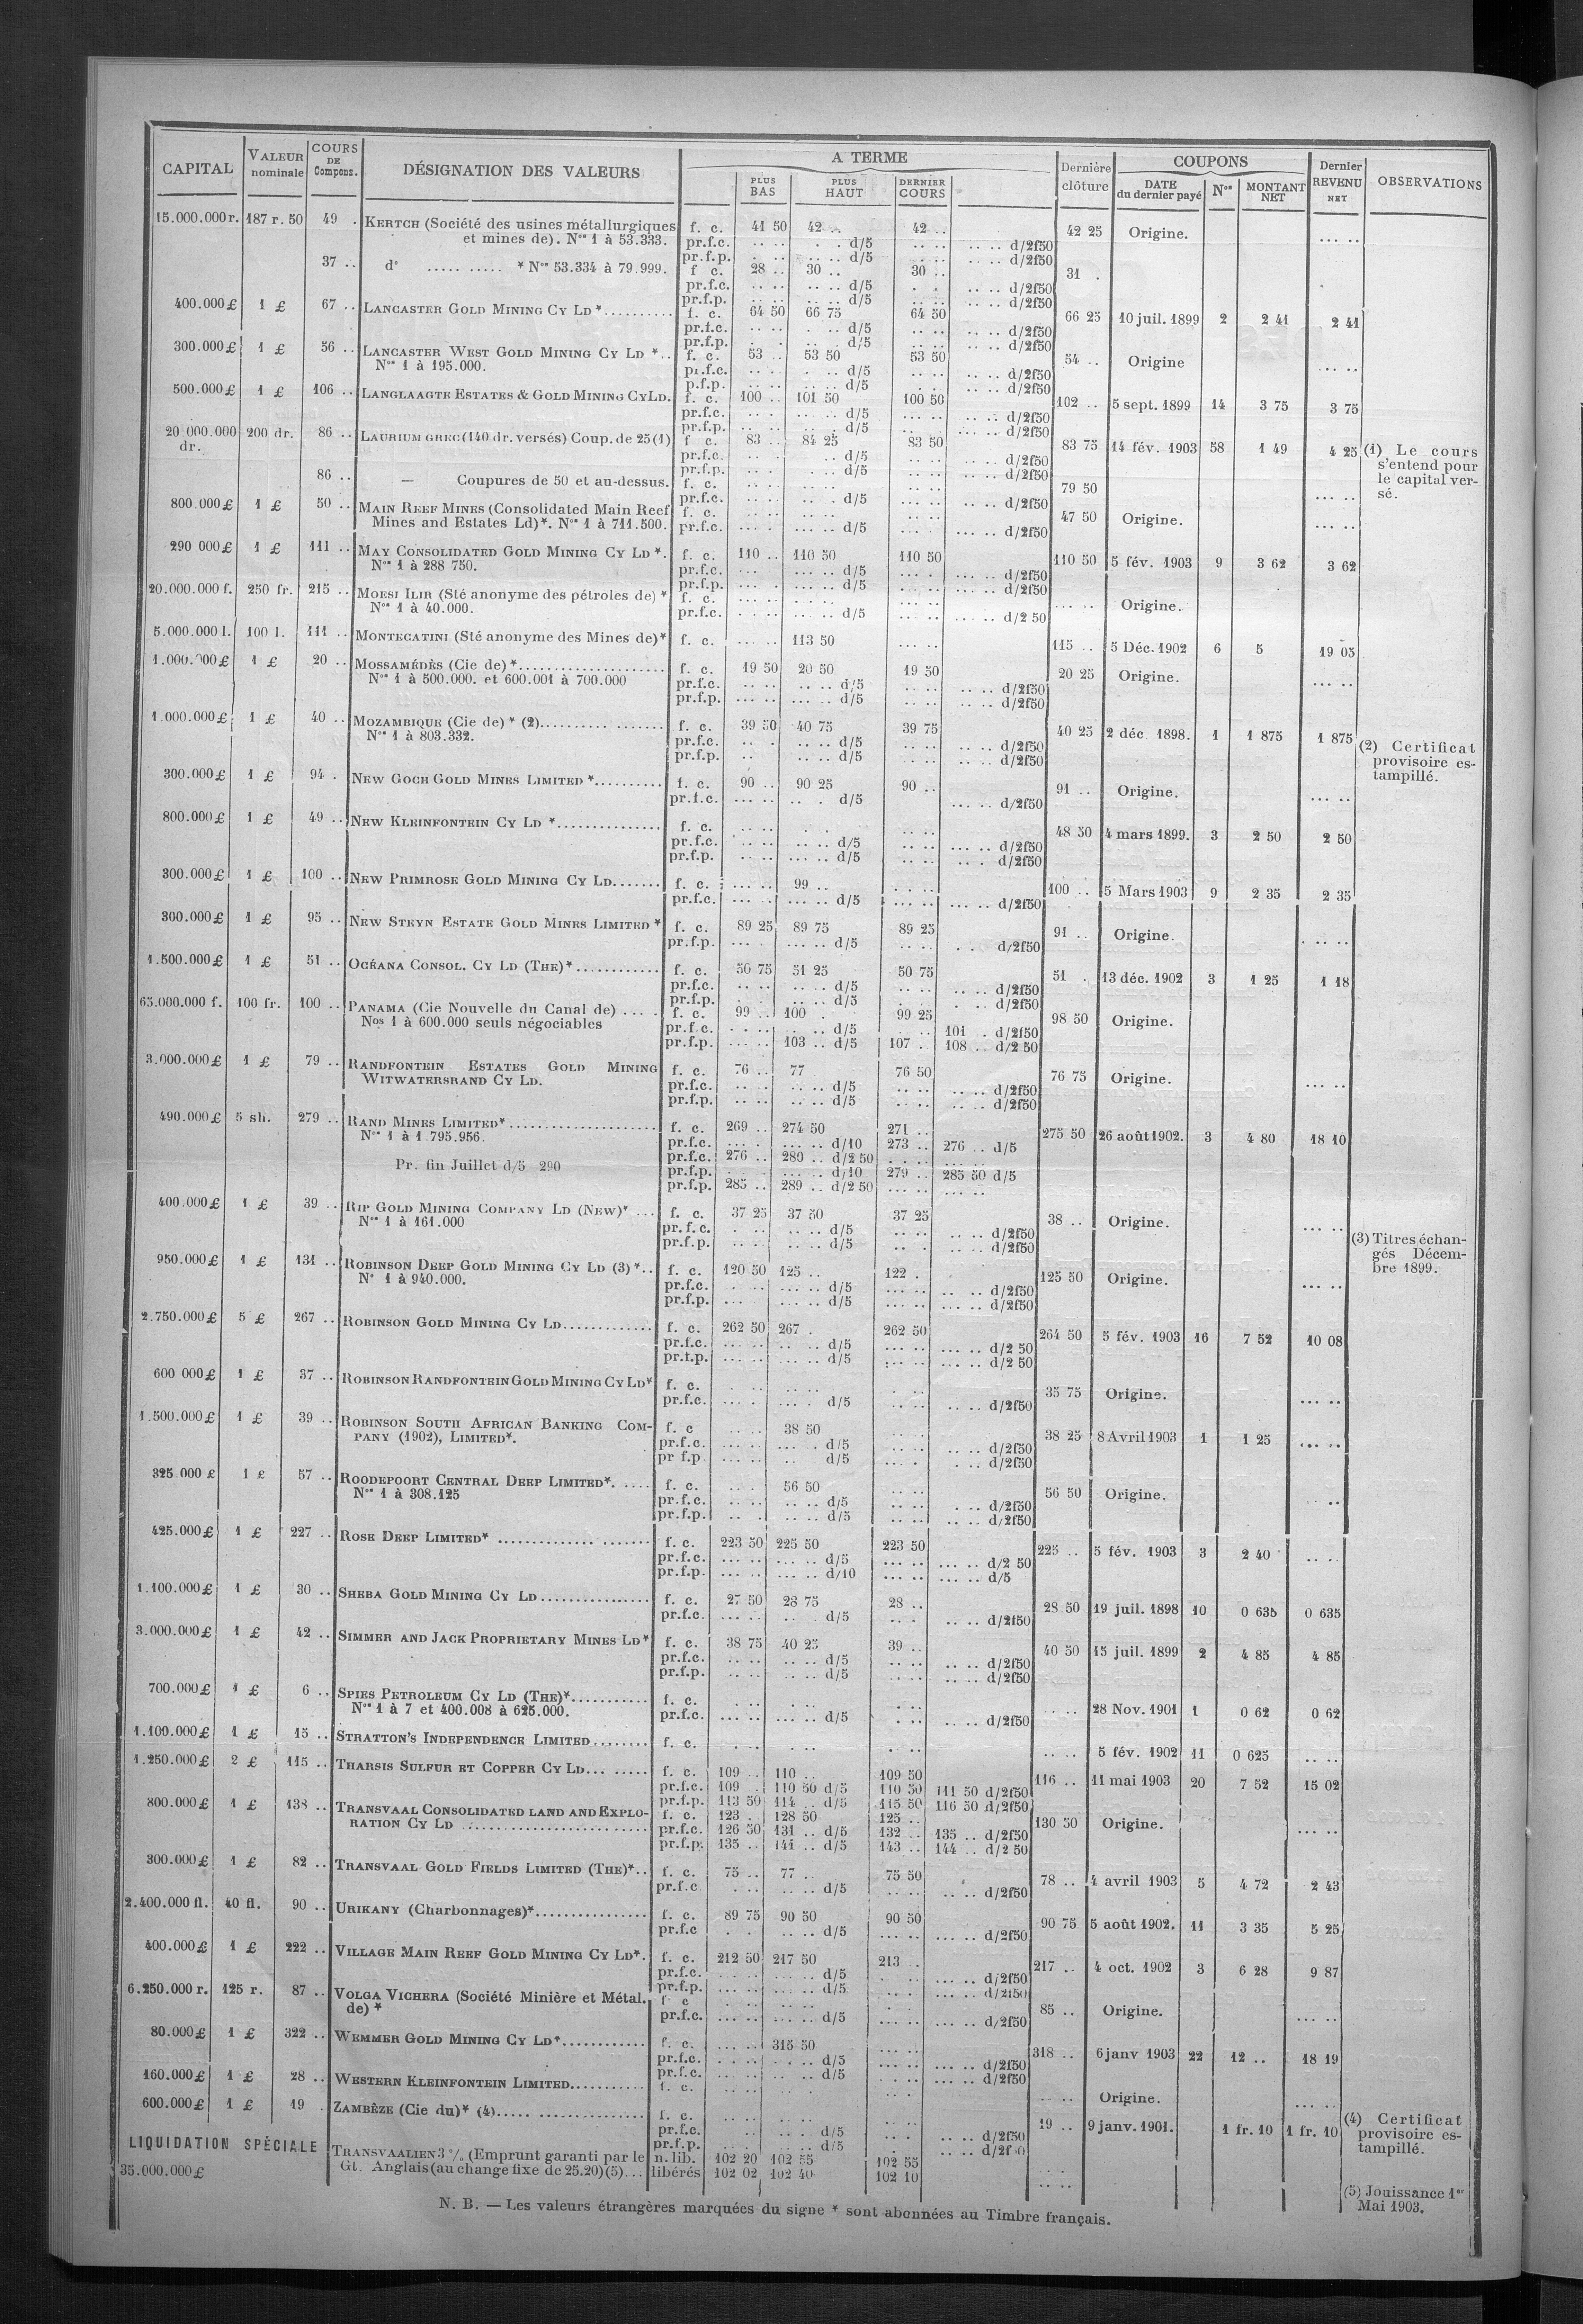 CAPITAL VALEUR nominale COURS DE Compens. DÉSIGNATION DES VALEURS A TERME PLUS BAS PLUS HAUT DERNIER COURS Dernière clôture COUPONS DATE du dernier payé Nos MONTANT NET Dernier REVENU NET OBSERVATIONS
15.000.000 r. 187 r. 50 49 . KERTCH (Société des usines métallurgiques f. c. 41 50 42 .. 42 .. 42 25 Origine. ... ..
et mines de). Nos 1 à 53.333. pr.f.c. .. .. . . d/5 .. .. .. .. d/2f50
pr.f.p. . .. .. .. d/5 . .. .. .. d/2f50
37 .. do ..... ..... * Nos 53.334 à 79.999. f c. 28 .. 30 .. 30 .. 31 .
pr.f.c. .. .. .. .. d/5 . . .. .. d/2f50
pr.f.p. .. .. .. .. d/5 .. .. .. .. d/2f50
400.000 £ 1 £ 67 .. LANCASTER GOLD MINING CY LD *.......... f. c. 64 50 66 75 64 50 66 25 10 juil. 1899 2 2 41 2 41
pr.f.c. .. .. . .. d/5 .. .. .. .. d/2f50
pr.f.p. . . .. . d/5 .. .. .. .. d/2f50
300.000 £ 1 £ 56 .. LANCASTER WEST GOLD MINING CY LD *.. f. c. 53 .. 53 50 53 50 54 .. Origine ... ..
Nos 1 à 195.000. pr.f.c. .. .. . .. d/5 .. .. .. .. d/2f50
p.f.p. .. .. .. .. d/5 . .. .. .. d/2f50
500.000 £ 1 £ 106 .. LANGLAAGTE ESTATES & GOLD MINING CY LD. f. c. 100 .. 101 50 100 50 102 .. 5 sept. 1899 14 3 75 3 75
pr.f.c. .. . .. .. d/5 ... .. .. .. d/2f50
pr.f.p. .. .. .. .. d/5 .. .. ... .. d/2f50
20 000.000 dr. 200 dr. 86 .. LAURIUM GREC (140 dr. versés) Coup. de 25 (1) f c. 83 .. 84 25 83 50 83 75 14 fév. 1903 58 1 49 4 25 (1) Le cours s'entend pour le capital versé.
pr.f.c. .. . .. d/5 .. .. .. .. d/2f50
pr.f.p. .. . .. .. d/5 .. .. .. .. d/2f50
86 .. — Coupures de 50 et au-dessus. f. c. .. .. .. .. .. .. 79 50 ... ..
pr.f.c. .. .. .. . d/5 ... .. ... .. d/2f50
800.000 £ 1 £ 50 .. MAIN REEF MINES (Consolidated Main Reef f. c. .. .. .. .. .. .. 47 50 Origine. ... ..
Mines and Estates Ld)*. Nos 1 à 711.500. pr.f.c. ... . ... .. d/5 .. .. ... .. d/2f50
290 000 £ 1 £ 111 .. MAY CONSOLIDATED GOLD MINING CY LD *. f. c. 110 .. 110 50 110 50 110 50 5 fév. 1903 9 3 62 3 62
Nos 1 à 288 750. pr.f.c. ... ... .. d/5 ... . ... .. d/2f50
pr.f.p. ... . ... .. d/5 ... .. ... .. d/2f50
20.000.000 f. 250 fr. 215 .. MOESI ILIR (Sté anonyme des pétroles de) * f. c. ... .. ... .. ... .. ... .. Origine.
Nos 1 à 40.000. pr.f.c. . .. .. .. d/5 .. .. ... .. d/2 50
5.000.000 l. 100 l. 111 .. MONTECATINI (Sté anonyme des Mines de)* f. c. ... .. 113 50 ... .. 115 .. 5 Déc. 1902 6 5 19 05
1.000.000 £ 1 £ 20 .. MOSSAMÉDÈS (Cie de) *.................... f. c. 19 50 20 50 19 50 20 25 Origine. ... ..
Nos 1 à 500.000. et 600.001 à 700.000 pr.f.c. .. .. .. .. d/5 .. .. .. .. d/2f50
pr.f.p. ... .. ... .. d/5 .. .. .. .. d/2f50
1.000.000 £ 1 £ 40 .. MOZAMBIQUE (Cie de) * (2).......... ....... f. c. 39 50 40 75 39 75 40 25 2 déc. 1898. 1 1 875 1 875 (2) Certificat provisoire estampillé.
Nos 1 à 803.332. pr.f.c. .. . .. .. d/5 .. .. .. .. d/2f50
pr.f.p. .. ... .. d/5 .. .. .. .. d/2f50
300.000 £ 1 £ 94 . NEW GOCH GOLD MINES LIMITED *.......... f. c. 90 .. 90 25 90 .. 91 .. Origine. ... ..
pr.f.c. ... .. .. . d/5 ... .. d/2f50
800.000 £ 1 £ 49 .. NEW KLEINFONTEIN CY LD *.............. f. c. .. .. . . .. .. 48 50 4 mars 1899. 3 2 50 2 50
pr.f.c. .. .. ... .. d/5 .. .. ... .. d/2f50
pr.f.p. .. .. ... .. d/5 .. .. .. . d/2f50
300.000 £ 1 £ 100 .. NEW PRIMROSE GOLD MINING CY LD....... f. c. ... .. 99 .. .. .. 100 .. 5 Mars 1903 9 2 35 2 35
pr.f.c. ... .. ... .. d/5 ... .. ... .. d/2f50
300.000 £ 1 £ 95 .. NEW STEYN ESTATE GOLD MINES LIMITED * f. c. 89 25 89 75 89 25 91 .. Origine. . .. ..
pr.f.p. ... . ... .. d/5 .. .. . . d/2f50
1.500.000 £ 1 £ 51 .. OCÉANA CONSOL. CY LD (THE)*............ f. c. 50 75 51 25 50 75 51 . 13 déc. 1902 3 1 25 1 18
pr.f.c. .. .. .. .. d/5 .. .. .. .. d/2f50
pr.f.p. . . .. .. d/5 . . .. d/2f50
65.000.000 f. 100 fr. 100 .. PANAMA (Cie Nouvelle du Canal de) .... . f. c. 99 .. 100 . 99 25 98 50 Origine.
Nos 1 à 600.000 seuls négociables pr.f.c. . .. . .. d/5 .. 101 . d/2f50
pr.f.p. ... .. 103 .. d/5 107 . 108 .. d/2 50
3.000.000 £ 1 £ 79 .. RANDFONTEIN ESTATES GOLD MINING f. c. 76 .. 77 76 50 76 75 Origine. ... ..
WITWATERSRAND CY LD. pr.f.c. .. .. .. .. d/5 .. .. .. .. d/2f50
pr.f.p. .. .. .. .. d/5 .. .. .. .. d/2f50
490.000 £ 5 sh. 279 .. RAND MINES LIMITED*.................... f. c. 269 .. 274 50 271 .. 275 50 26 août 1902. 3 4 80 18 10
Nos 1 à 1.795.956. pr.f.c. ... . ... .. d/10 273 .. 276 .. d/5
pr.f.c. 276 .. 280 .. d/2 50 . .. ... ..
Pr. fin Juillet d/5 290 pr.f.p. . . ... .. d/10 279 .. 285 50 d/5
pr.f.p. 285 .. 289 .. d/2 50 ... .. ... ..
400.000 £ 1 £ 39 .. RIP GOLD MINING COMPANY LD (NEW)* ... f. c. 37 25 37 50 37 25 38 .. Origine. ... ..
Nos 1 à 161.000 pr.f.c. . .. .. .. d/5 .. .. d/2f50
pr.f.p. .. . .. .. d/5 .. . .. .. d/2f50
950.000 £ 1 £ 131 .. ROBINSON DEEP GOLD MINING CY LD (3) *.. f. c. 120 50 125 .. 122 . 125 50 Origine. ... .. (3) Titres échangés Décembre 1899.
No 1 à 940.000. pr.f.c. . .. ... .. d/5 ... .. .. .. d/2f50
pr.f.p. ... ... .. d/5 ... .. ... .. d/2f50
2.750.000 £ 5 £ 267 .. ROBINSON GOLD MINING CY LD............ f. c. 262 50 267 . 262 50 264 50 5 fév. 1903 16 7 52 10 08
pr.f.c. ... .. .. .. d/5 ... .. ... .. d/2 50
pr.f.p. ... .. ... .. d/5 ... .. ... .. d/2 50
600 000 £ 1 £ 37 .. ROBINSON RANDFONTEIN GOLD MINING CY LD* f. c. . .. .. .. . .. 35 75 Origine. ... ..
pr.f.c. ... . ... . d/5 .. .. .. .. d/2f50
1.500.000 £ 1 £ 39 .. ROBINSON SOUTH AFRICAN BANKING COM- f. c .. .. 38 50 38 25 8 Avril 1903 1 1 25 ... ..
PANY (1902), LIMITED*. pr.f.c. .. .. ... . d/5 .. .. .. .. d/2f50
pr f.p. ... .. .. d/5 ... . . .. d/2f50
325.000 £ 1 £ 57 .. ROODEPOORT CENTRAL DEEP LIMITED*. .... f. c. .. . 56 50 .. .. 56 50 Origine. ..
Nos 1 à 308.125 pr.f.c. .. .. .. .. d/5 .. .. . .. d/2f50
pr.f.p. .. . .. .. d/5 .. .. .. .. d/2f50
425.000 £ 1 £ 227 .. ROSE DEEP LIMITED* .............. ....... f. c. 223 50 225 50 223 50 225 .. 5 fév. 1903 3 2 40 .. ..
pr.f.c. ... .. ... .. d/5 ... .. ... .. d/2 50
pr.f.p. ... .. ... .. d/10 ... .. ... .. d/5
1.100.000 £ 1 £ 30 .. SHEBA GOLD MINING CY LD................ f. c. 27 50 28 75 28 .. 28 50 19 juil. 1898 10 0 635 0 635
pr.f.c. ... .. .. . d/5 .. . .. .. d/2f50
3.000.000 £ 1 £ 42 .. SIMMER AND JACK PROPRIETARY MINES LD* f. c. 38 75 40 25 39 .. 40 50 15 juil. 1899 2 4 85 4 85
pr.f.c. .. .. .. .. d/5 .. .. .. .. d/2f50
pr.f.p. .. .. .. .. d/5 .. .. .. .. d/2f50
700.000 £ 1 £ 6 .. SPIES PETROLEUM CY LD (THE)*........... f. c. . .. .. .. ... .. .. 28 Nov. 1901 1 0 62 0 62
Nos 1 à 7 et 400.008 à 625.000. pr.f.c. ... .. ... .. d/5 . .. .. .. d/2f50
1.100.000 £ 1 £ 15 .. STRATTON'S INDEPENDENCE LIMITED........ f. c. . . . .. . .. .. .. 5 fév. 1902 11 0 625 .. ..
1.250.000 £ 2 £ 115 .. THARSIS SULFUR ET COPPER CY LD... ..... f. c. 109 .. 110 .. 109 50 116 .. 11 mai 1903 20 7 52 15 02
pr.f.c. 109 . 110 50 d/5 110 50 111 50 d/2f50
pr.f.p. 113 50 114 .. d/5 115 50 116 50 d/2f50
800.000 £ 1 £ 138 .. TRANSVAAL CONSOLIDATED LAND AND EXPLO- f. c. 123 . 128 50 125 .. 130 50 Origine. ... ..
RATION CY LD ........................... pr.f.c. 126 50 131 .. d/5 132 .. 135 .. d/2f50
pr.f.p. 135 .. 141 .. d/5 143 .. 144 .. d/2 50
300.000 £ 1 £ 82 .. TRANSVAAL GOLD FIELDS LIMITED (THE)*.. f. c. 75 .. 77 .. 75 50 78 .. 4 avril 1903 5 4 72 2 43
pr.f.c . .. .. .. d/5 .. .. .. .. d/2f50
2.400.000 fl. 40 fl. 90 .. URIKANY (Charbonnages)*................ f. c. 89 75 90 50 90 50 90 75 5 août 1902. 11 3 35 5 25
pr.f.c . . .. .. d/5 ... .. ... .. d/2f50
400.000 £ 1 £ 222 .. VILLAGE MAIN REEF GOLD MINING CY LD*. f. c. 212 50 217 50 213 .. 217 .. 4 oct. 1902 3 6 28 9 87
pr.f.c. . .. .. ... .. d/5 . .. ... .. d/2f50
pr.f.p. ... .. ... .. d/5 .. . ... .. d/2f50
6.250.000 r. 125 r. 87 .. VOLGA VICHERA (Société Minière et Métal. f c . .. .. .. .. .. 85 .. Origine. ... ..
de) * pr.f.c. ... .. ... .. d/5 .. . .. .. d/2f50
80.000 £ 1 £ 322 .. WEMMER GOLD MINING CY LD*............ f. c. ... .. 315 50 .. .. 318 .. 6 janv 1903 22 12 .. 18 19
pr.f.c. . .. .. . .. d/5 ... .. ... .. d/2f50
pr.f.c. .. .. .. .. d/5 . .. ... .. d/2f50
160.000 £ 1 £ 28 .. WESTERN KLEINFONTEIN LIMITED........... f. c. .. .. .. . .. . .. .. Origine. ... ..
600.000 £ 1 £ 19 . ZAMBÈZE (Cie du)* (4)..... ................ f. c. .. .. .. .. .. .. 19 .. 9 janv. 1901. 1 fr. 10 1 fr. 10 (4) Certificat provisoire estampillé.
pr.f.c. .. . .. .. d/5 .. . .. .. d/2f50
pr.f.p. .. . .. .. d/5 . .. .. d/2f50
LIQUIDATION SPÉCIALE TRANSVAALIEN 3 % (Emprunt garanti par le n. lib. 102 20 102 55 102 55 . ..
35.000.000 £ Gt. Anglais (au change fixe de 25.20) (5)... libérés 102 02 102 40 102 10 .. .. (5) Jouissance 1er Mai 1903.
N. B. — Les valeurs étrangères marquées du signe * sont abonnées au Timbre français.